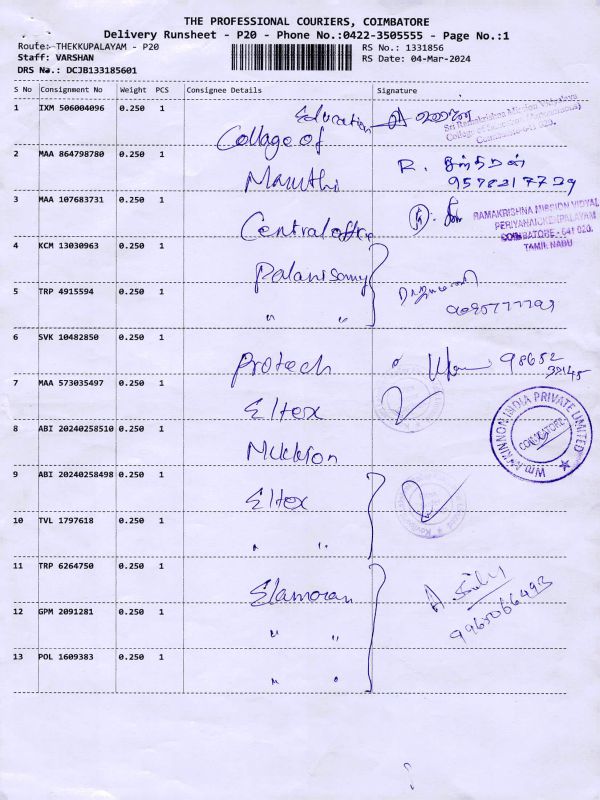 THE PROFESSIONAL COURIERS, COIMBATORE
Delivery Runsheet - P20 - Phone No.:0422-3505555 - Page No.:1
Route: THEKKUPALAYAM - P20
RS No.: 1331856
Staff: VARSHAN
RS Date: 04-Mar-2024
DRS No.: DCJB133185601
S No Consignment No Weight PCS Consignee Details Signature
1 IXM 506004096 0.250 1 College of Education
Sri Ramakrishna Mission Vidyalaya
College of Education (Autonomous)
Coimbatore-641 020.
2 MAA 864798780 0.250 1 Maruthi R.
3 MAA 107683731 0.250 1 Central office
RAMAKRISHNA MISSION VIDYAL
PERIYANAICKENPALAYAM
COIMBATORE - 641 020.
TAMIL NADU
4 KCM 13030963 0.250 1 Palanisamy
5 TRP 4915594 0.250 1 " "
6 SVK 10482850 0.250 1 Protech 98652
7 MAA 573035497 0.250 1 Eltex
Wm. INDIA PRIVATE LIMITED
COIMBATORE
8 ABI 20240258510 0.250 1
9 ABI 20240258498 0.250 1 Eltex
10 TVL 1797618 0.250 1 " "
11 TRP 6264750 0.250 1 A.
12 GPM 2091281 0.250 1 " " 9965066493
13 POL 1609383 0.250 1 " "